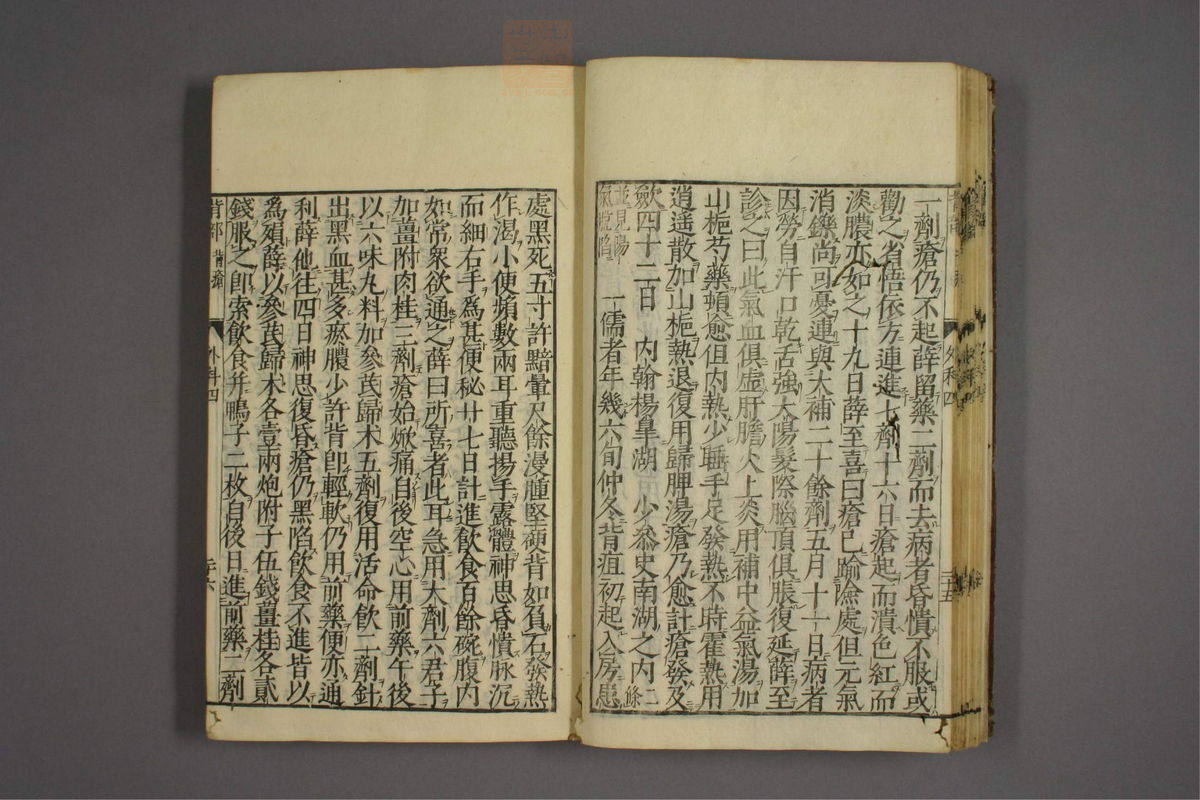 一劑瘡仍不起薛留藥二劑而去病者昏憒不服或
勸之省悟依方連進七劑十六日瘡起而潰色紅而
淡膿亦如之十九日薛至喜曰瘡已踰險處但元氣
消鑠尚可憂連與大補二十餘劑五月十一日病者
因勞自汗口乾舌強太陽髮際腦頂俱脹復延薛至
診之曰此氣血俱虛肝膽火上炎用補中益氣湯加
山梔芍藥頓愈但内熱少睡手足發熱不時霍熱用
逍遥散加山梔熱退復用歸脾湯瘡乃愈計瘡發及
歛四十二日 内翰楊皐湖 少叅史南湖之内二條
並見陽氣脫陷 一儒者年幾六旬仲冬背疽初起入房患
處黑死五寸許黯暈尺餘漫腫堅硬背如負石發熱
作渴小便頻數兩耳重聽揚手露體神思昏憒脉沉
而細右手爲甚便秘廿七日計進飮食百餘碗腹内
如常衆欲通之薛曰所喜者此耳急用大劑六君子
加薑附肉桂三劑瘡始焮痛自後空心用前藥午後
以六味丸料加參芪歸术五劑復用活命飮二劑針
出黑血甚多瘀膿少許背即輕軟仍用前藥便亦通
利薛他往四日神思復昏瘡仍黑陷飮食不進皆以
爲殞薛以參芪歸术各壹兩炮附子伍錢薑桂各貳
錢服之即索飮食并鴨子二枚自後日進前藥二劑
背部 背瘡 外科四